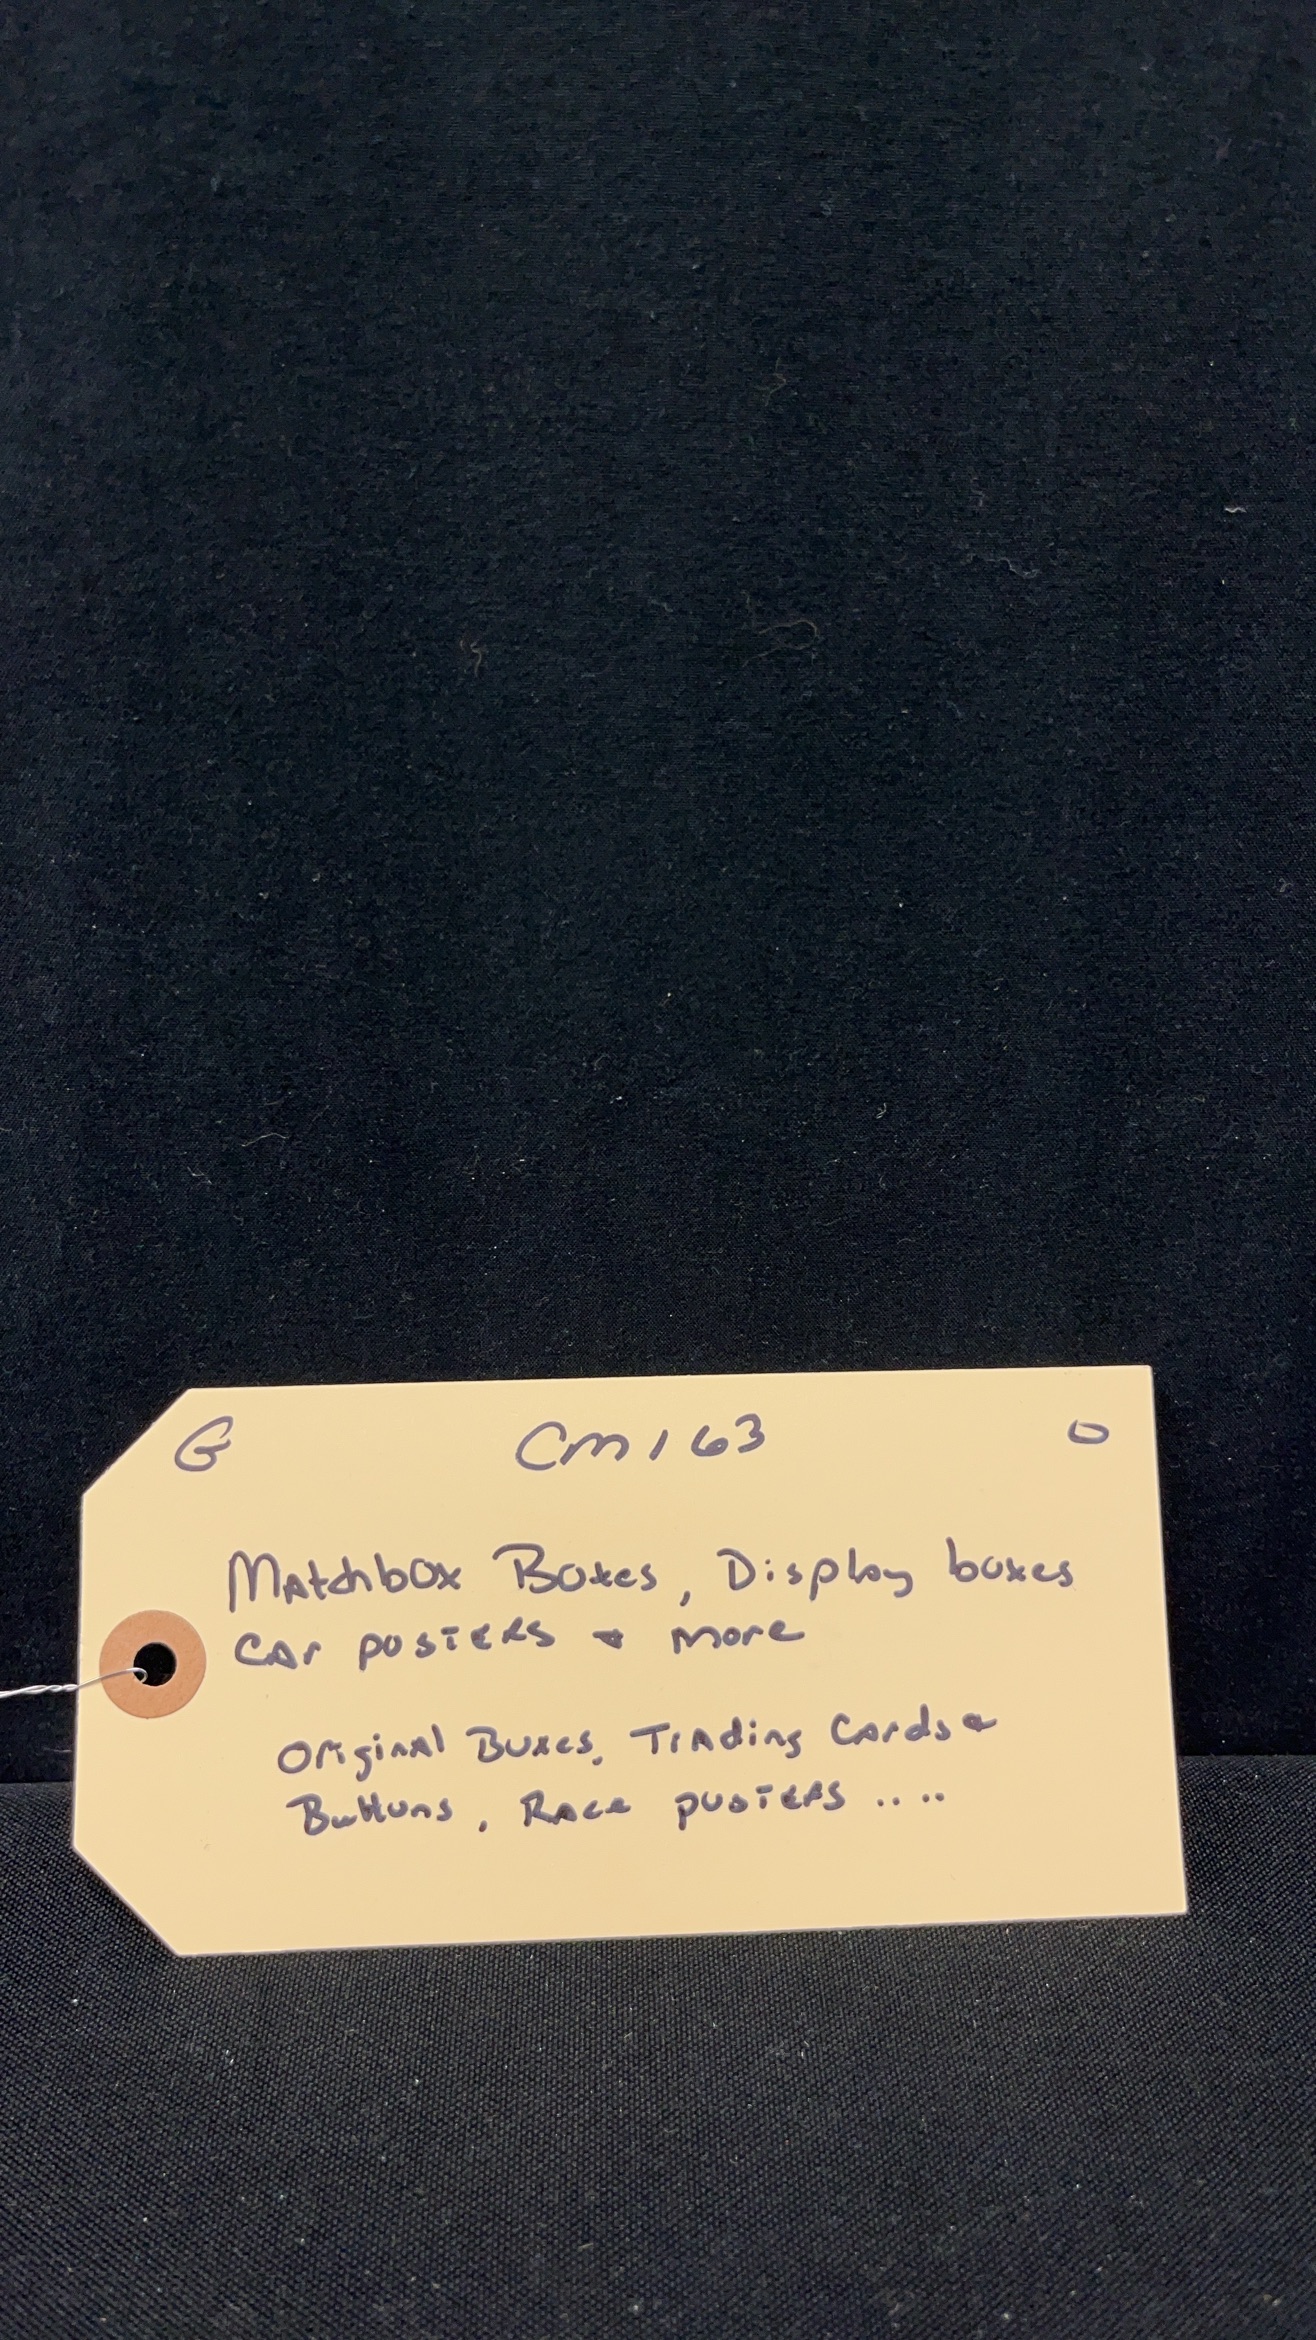 G CM163 O
Matchbox Boxes, Display boxes
Car posters & more
Original Boxes, Trading Cards &
Buttons, Race posters ....